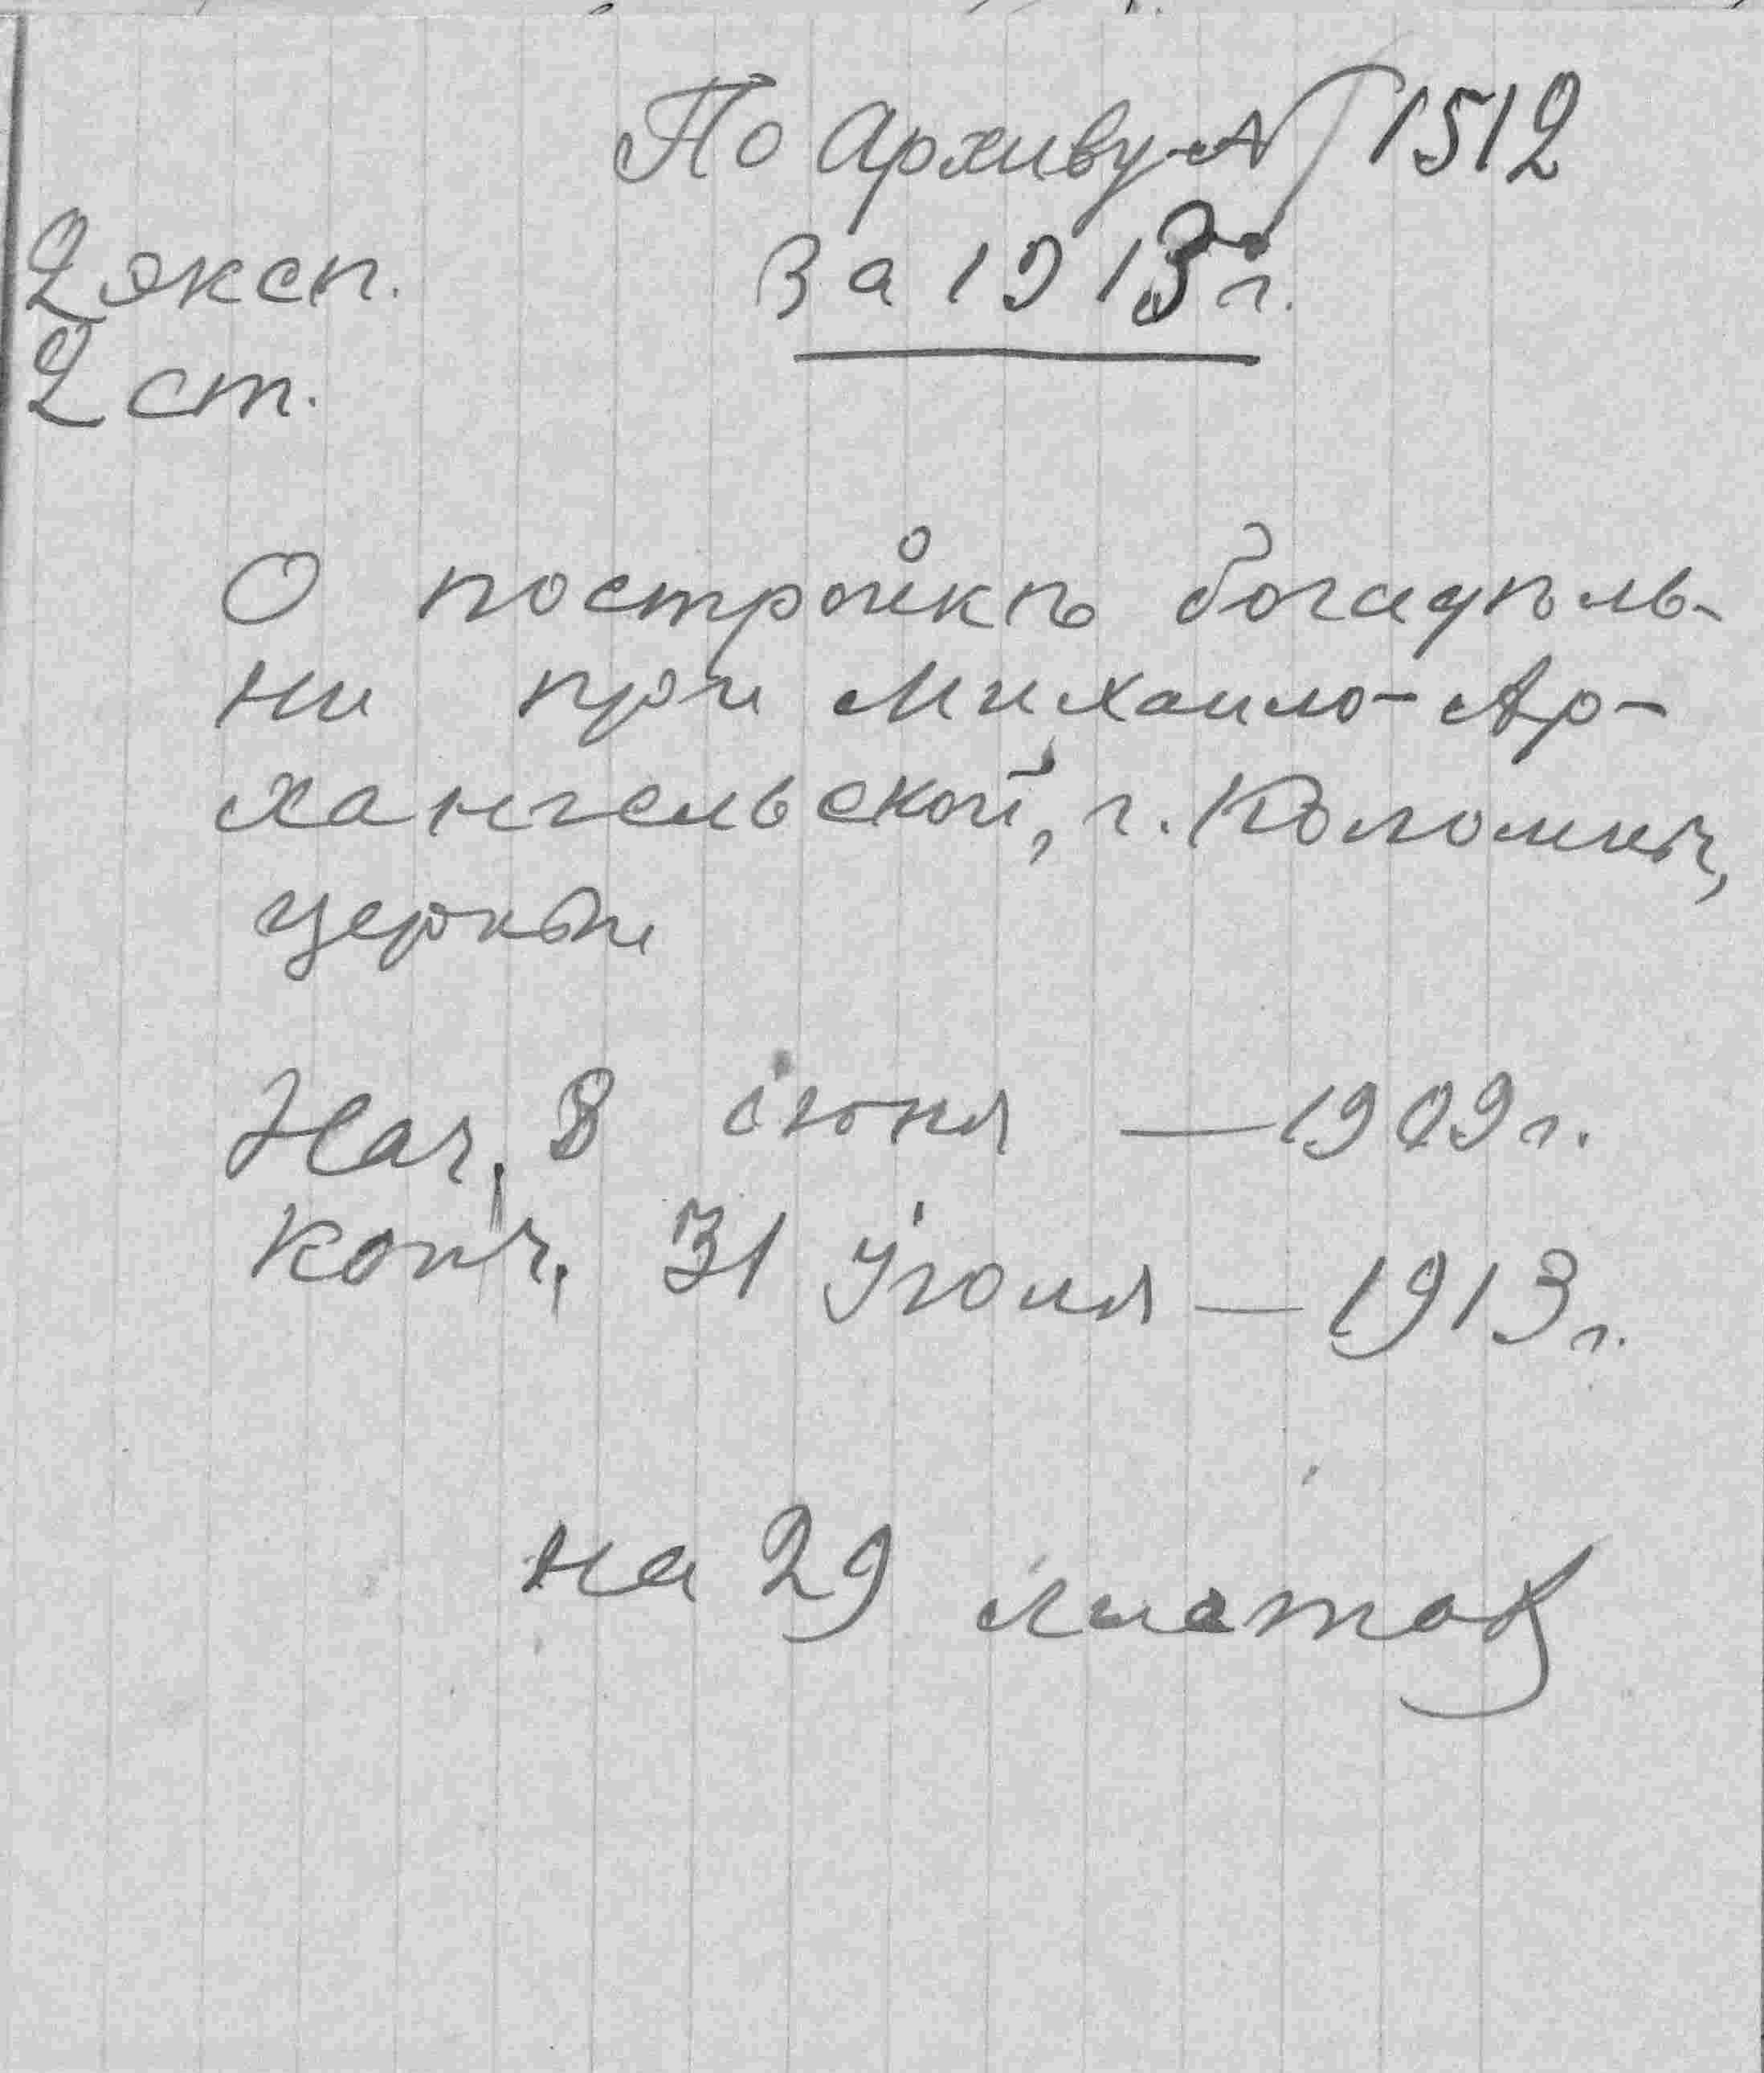 По Архиву № 1512
За 1913 г.
2 эксп.
2 ст.
О постройкѣ богадѣль-
ни при Михаило-Ар-
хангельской, г. Коломны,
церкви
Нач. 8 июня — 1909 г.
Конч. 31 Июля — 1913 г.
на 29 листах